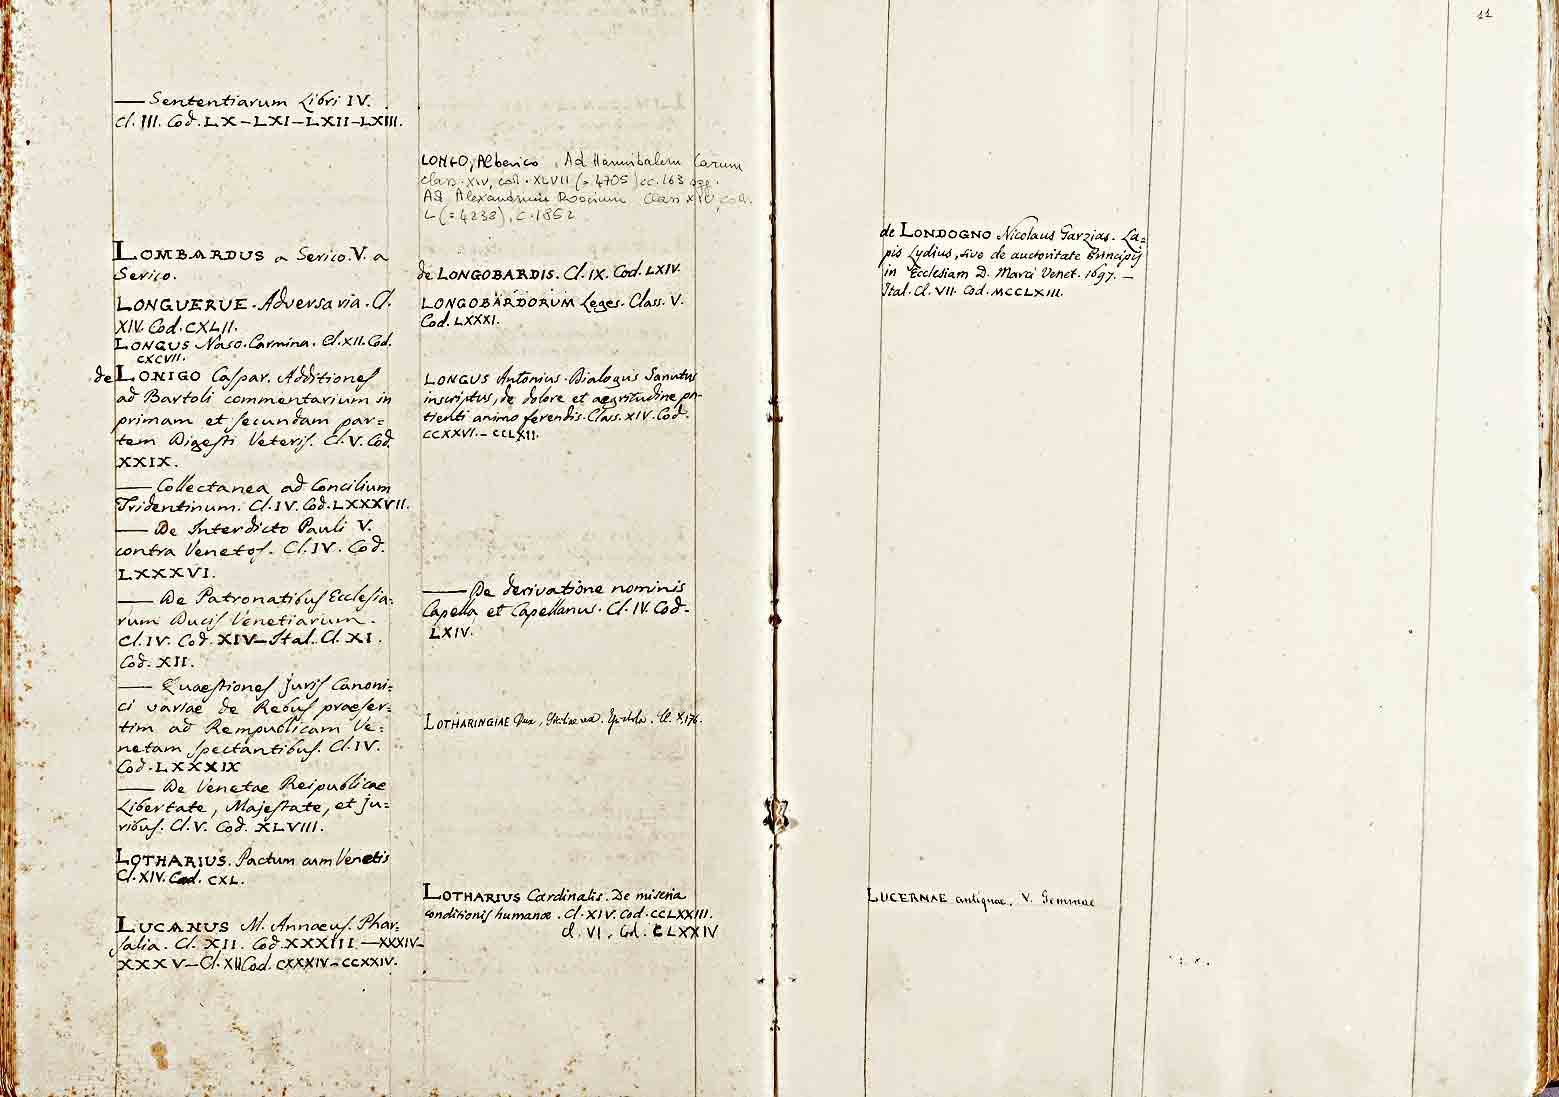 — Sententiarum Libri IV.
Cl. III. Cod. LX–LXI–LXII–LXIII.
LOMBARDUS a Serico. V. a
Serico.
LONGUERUE. Adversaria. Cl.
XIV. Cod. CXLII.
LONGUS Naso. Carmina. Cl. XII. Cod.
CXCVII.
de LONIGO Caspar. Additiones
ad Bartoli commentarium in
primam et secundam par=
tem Digesti Veteris. Cl. V. Cod.
XXIX.
— Collectanea ad Concilium
Tridentinum. Cl. IV. Cod. LXXXVII.
— De Interdicto Pauli V.
contra Venetos. Cl. IV. Cod.
LXXXVI.
— De Patronatibus Ecclesia=
rum Ducis Venetiarum.
Cl. IV. Cod. XIV–Ital. Cl. XI.
Cod. XII.
— Quaestiones juris Canoni=
ci variae de Rebus praeser=
tim ad Rempublicam Ve=
netam spectantibus. Cl. IV.
Cod. LXXXIX
— De Venetae Reipublicae
Libertate, Majestate, et ju=
ribus. Cl. V. Cod. XLVIII.
LOTHARIUS. Pactum cum Venetis
Cl. XIV. Cod. CXL.
LUCANUS M. Annaeus. Phar=
salia. Cl. XII. Cod. XXXIII.—XXXIV–
XXXV–Cl. XII Cod. CXXXIV–CCXXIV.
LONGO, Alberico. Ad Hannibalem Carum
class. XIV, cod. XLVII (= 4705) cc. 163
Ad Alexandrum class XIV, cod.
L (= 4238), c. 1852
de LONGOBARDIS. Cl. IX. Cod. LXIV.
LONGOBARDORUM Leges. Class. V.
Cod. LXXXI.
LONGUS Antonius. Dialogus Sanutus
inscriptus, de dolore et aegritudine pa=
tienti animo ferendis. Class. XIV. Cod.
CCXXVI.–CCLXII.
— De derivatione nominis
Capella et Capellanus. Cl. IV. Cod.
LXIV.
LOTHARINGIAE Dux, Cl. X. 176.
LOTHARIUS Cardinalis. De miseria
conditionis humanae. Cl. XIV. Cod. CCLXXIII.
Cl. VI. Cod. CLXXIV
11
de LONDOGNO Nicolaus Garzias. La=
pis Lydius, sive de auctoritate Principis
in Ecclesiam D. Marci Venet. 1697. —
Ital. Cl. VII. Cod. MCCLXIII.
LUCERNAE antiquae. V. Gemmae